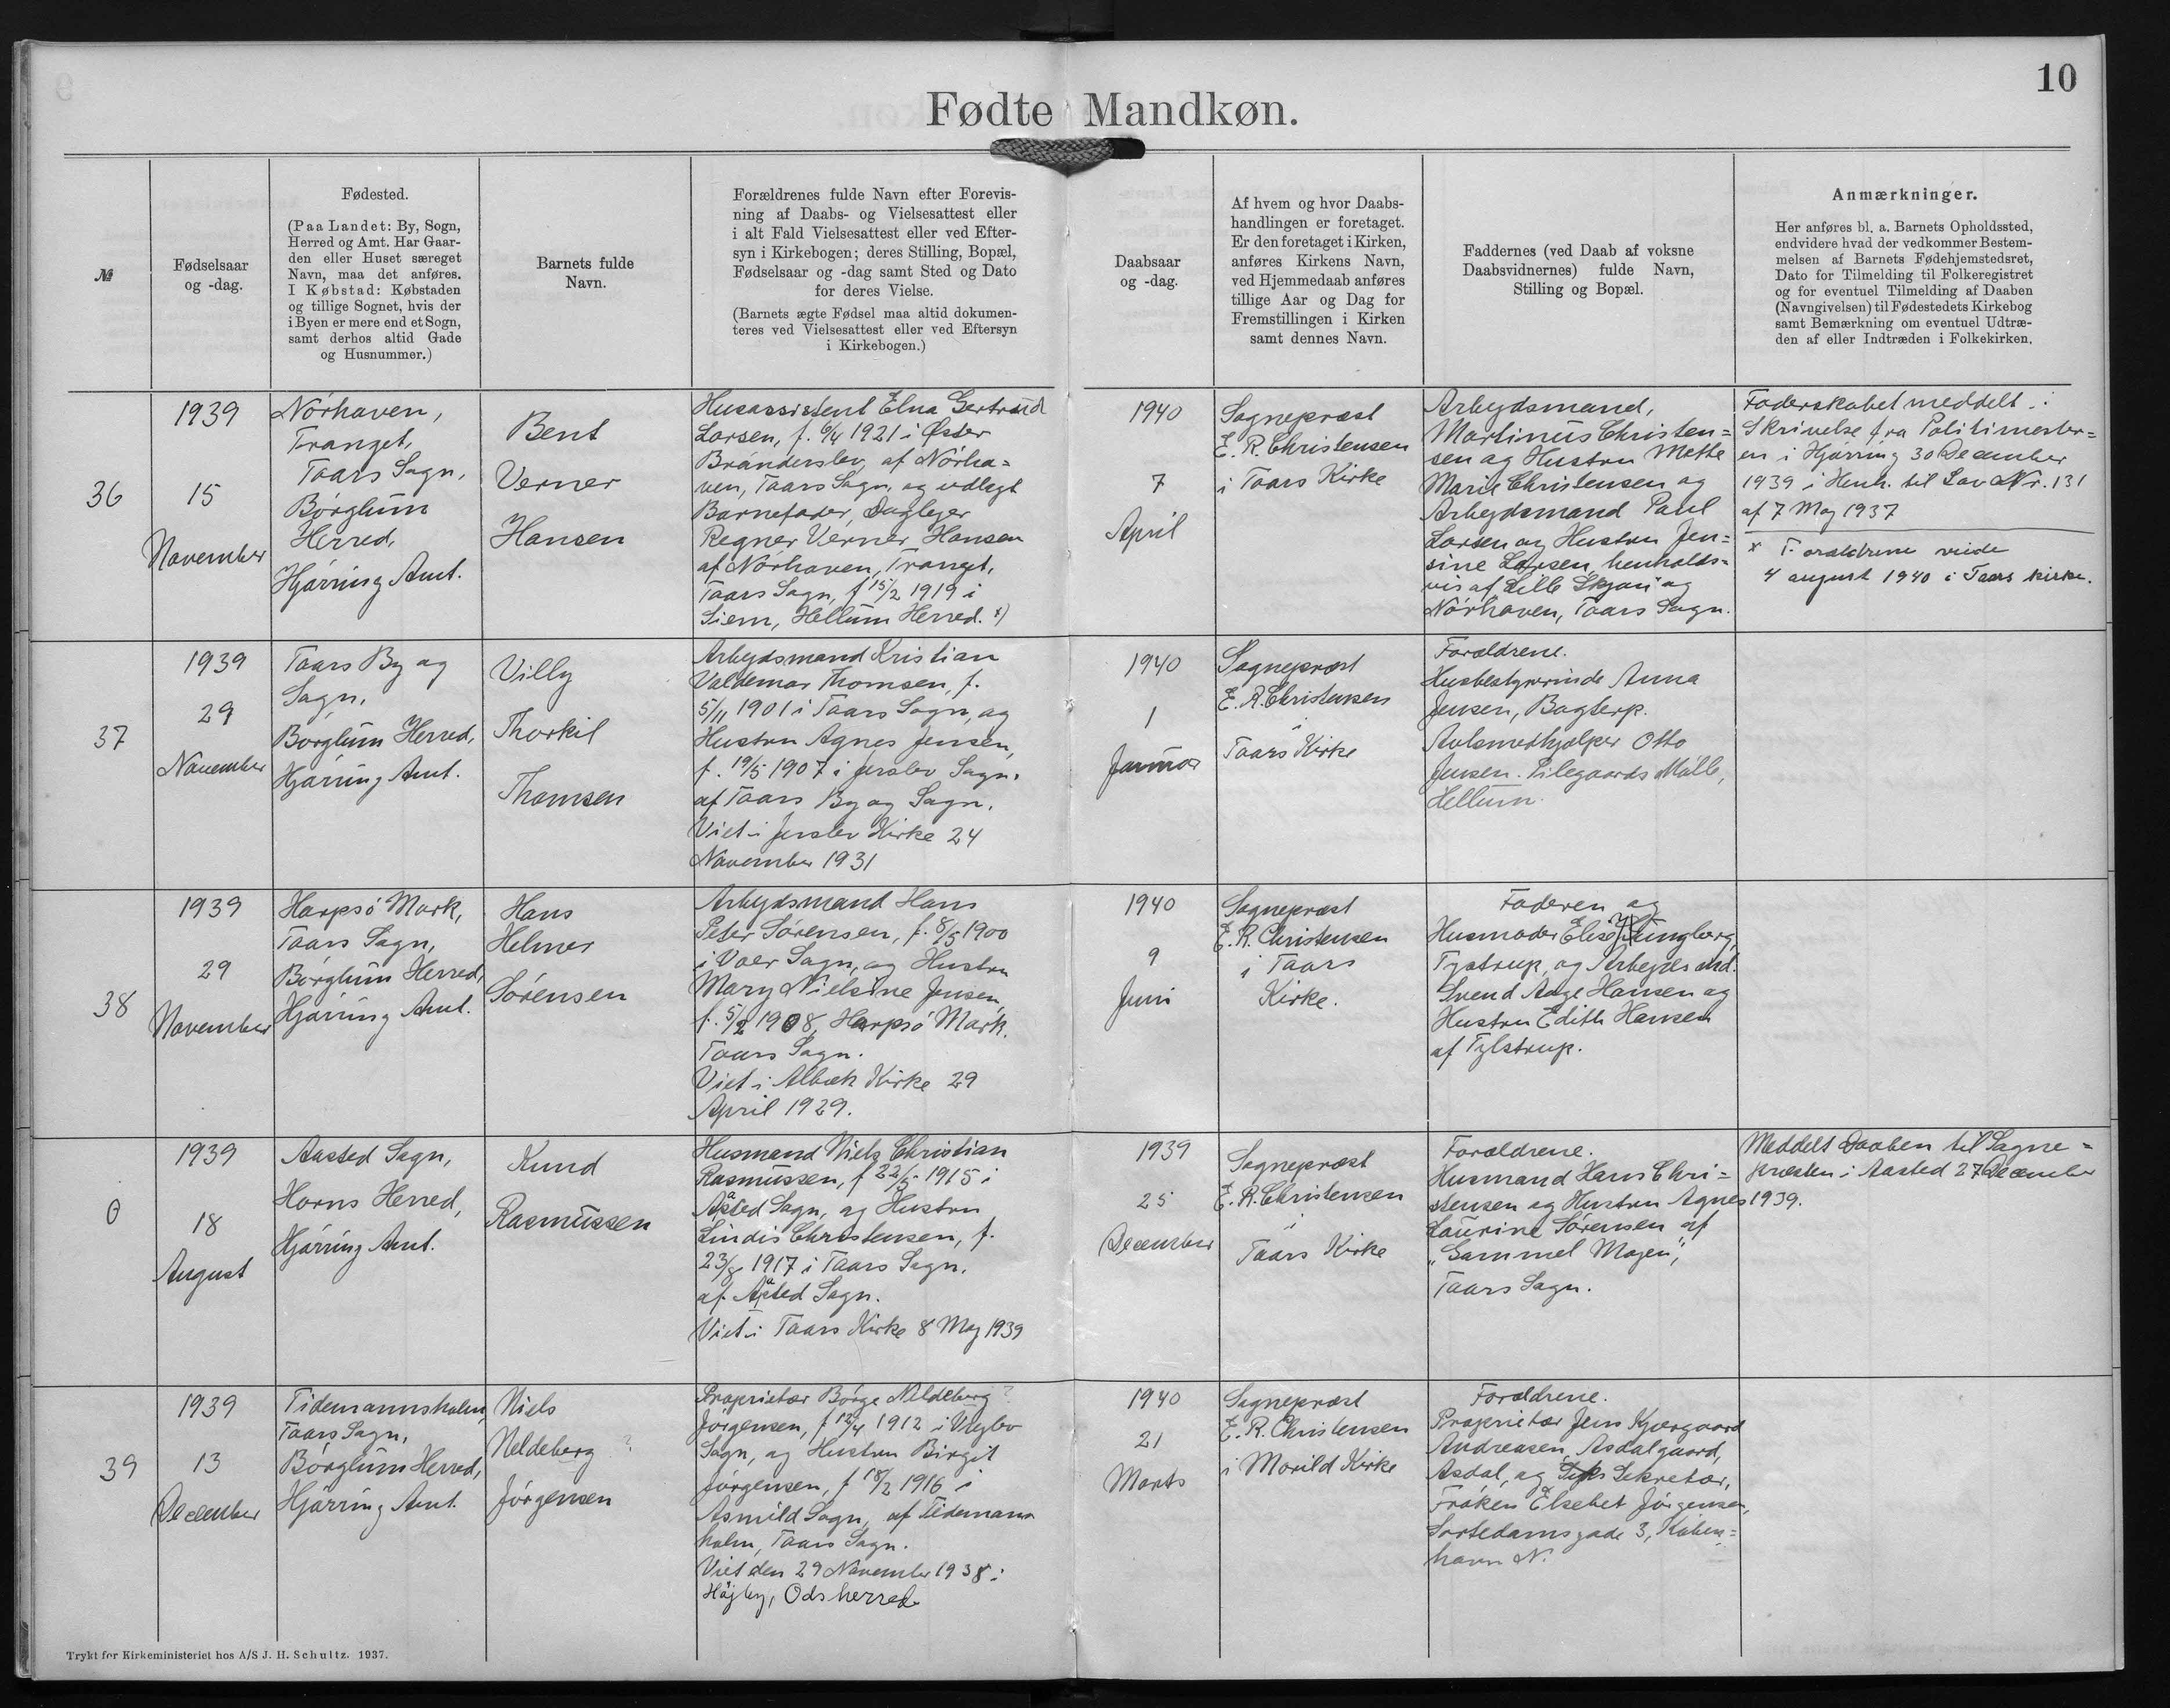 10
Fødte Mandkøn.
№
Fødselsaar
og -dag.
Fødested.
(Paa Landet: By, Sogn,
Herred og Amt. Har Gaar-
den eller Huset særeget
Navn, maa det anføres.
I Købstad: Købstaden
og tillige Sognet, hvis der
i Byen er mere end et Sogn,
samt derhos altid Gade
og Husnummer.)
Barnets fulde
Navn.
Forældrenes fulde Navn efter Forevis-
ning af Daabs- og Vielsesattest eller
i alt Fald Vielsesattest eller ved Efter-
syn i Kirkebogen; deres Stilling, Bopæl,
Fødselsaar og -dag samt Sted og Dato
for deres Vielse.
(Barnets ægte Fødsel maa altid dokumen-
teres ved Vielsesattest eller ved Eftersyn
i Kirkebogen.)
Daabsaar
og -dag.
Af hvem og hvor Daabs-
handlingen er foretaget.
Er den foretaget i Kirken,
anføres Kirkens Navn,
ved Hjemmedaab anføres
tillige Aar og Dag for
Fremstillingen i Kirken
samt dennes Navn.
Faddernes (ved Daab af voksne
Daabsvidnernes) fulde Navn,
Stilling og Bopæl.
Anmærkninger.
Her anføres bl. a. Barnets Opholdssted,
endvidere hvad der vedkommer Bestem-
melsen af Barnets Fødehjemstedsret,
Dato for Tilmelding til Folkeregistret
og for eventuel Tilmelding af Daaben
(Navngivelsen) til Fødestedets Kirkebog
samt Bemærkning om eventuel Udtræ-
den af eller Indtræden i Folkekirken.
36
1939
15
November
Nørhaven,
Tranget,
Taars Sogn,
Børglum
Herred,
Hjørring Amt.
Bent
Verner
Hansen
Husassistent Elna Gertrud
Larsen, f. 6/4 1921 i Øster
Brønderslev, af Nørha=
ven, Taars Sogn, og udlagt
Barnefader, Daglejer
Regner Verner Hansen
af Nørhaven, Tranget,
Taars Sogn, f 15/2 1919 i
Siem, Hellum Herred. x)
1940
7
April
Sognepræst
E. R. Christensen
i Taars Kirke
Arbejdsmand,
Martinus Christen=
sen og Hustru Mette
Marie Christensen og
Arbejdsmand Paul
Larsen og Hustru Jen=
sine Larsen, henholds=
vis af Lille Skjari og
Nørhaven, Taars Sogn.
Faderskabet meddelt i
Skrivelse fra Politimester=
en i Hjørring 30 December
1939 i Henh. til Lov Nr. 131
af 7 Maj 1937
x Forældrene viede
4 august 1940 i Taars kirke.
37
1939
29
November
Taars By og
Sogn,
Børglum Herred,
Hjørring Amt.
Villy
Thorkil
Thomsen
Arbejdsmand Kristian
Valdemar Thomsen, f.
5/11 1901 i Taars Sogn, og
Hustru Agnes Jensen,
f. 19/5 1907 i Jerslev Sogn.
af Taars By og Sogn.
Viet i Jerslev Kirke 24
November 1931
1940
1
Januar
Sognepræst
E. R. Christensen
i
Taars Kirke
Forældrene.
Husbestyrerinde Anna
Jensen, Bagterp.
Avlsmedhjælper Otto
Jensen. Pilegaards Mølle,
Hellum.
38
1939
29
November
Harpsø Mark,
Taars Sogn,
Børglum Herred,
Hjørring Amt.
Hans
Helmer
Sørensen
Arbejdsmand Hans
Peter Sørensen, f. 8/5 1900
i Voer Sogn, og Hustru
Mary Nielsine Jensen,
f. 5/2 1908, Harpsø Mark,
Taars Sogn.
Viet i Albæk Kirke 29
April 1929.
1940
9
Juni
Sognepræst
E. R. Christensen
i Taars
Kirke.
Faderen og
Husmoder Elise Ljungberg,
Tylstrup, og Arbejdsmd.
Svend Aage Hansen og
Hustru Edith Hansen
af Tylstrup.
0
1939
18
August
Aasted Sogn,
Horns Herred,
Hjørring Amt.
Knud
Rasmussen
Husmand Niels Christian
Rasmussen, f 22/5 1915 i
Åsted Sogn, og Hustru
Lindis Christensen, f.
23/8 1917 i Taars Sogn.
af Åsted Sogn.
Viet i Taars Kirke 8 Maj 1939
1939
25
December
Sognepræst
E. R. Christensen
i
Taars Kirke
Forældrene.
Husmand Hans Chri=
stensen og Hustru Agnes
Laurine Sørensen af
"Gammel Mojen",
Taars Sogn.
Meddelt Daaben til Sogne=
præsten i Aasted 27 December
1939.
39
1939
13
December
Tidemannsholm,
Taars Sogn,
Børglum Herred,
Hjørring Amt.
Niels
Neldeberg ?
Jørgensen
Proprietær Børge Neldeberg ?
Jørgensen, f 12/4 1912 i Vejlev
Sogn, og Hustru Birgit
Jørgensen, f 18/2 1916 i
Asmild Sogn, af Tidemans
holm, Taars Sogn.
Viet den 29 November 1938 i
Højby, Ods herred
1940
21
Marts
Sognepræst
E. R. Christensen
i Morild Kirke
Forældrene.
Proprietær Jens Kjærgaard
Andreasen, Asdalgaard,
Asdal, og Sekretær,
Frøken Elsebet Jørgensen,
Sortedamsgade 3, Køben=
havn N.
Trykt for Kirkeministeriet hos A/S J. H. Schultz. 1937.